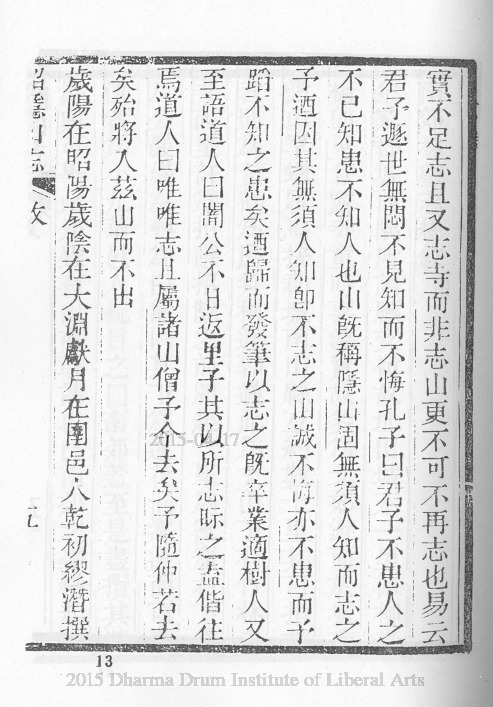 實不足志且又志寺而非志山更不可不再志也易云
君子遯世無悶不見知而不悔孔子曰君子不患人之
不已知患不知人也山旣稱隱山固無須人知而志之
予迺因其無須人知卽不志之山誠不悔亦不患而予
蹈不知之患矣迺歸而發筆以志之旣卒業適樹人又
至語道人曰闇公不日返里子其以所志眎之盍偕往
焉道人曰唯唯志且屬諸山僧予今去矣予隨仲若去
矣殆將入茲山而不出
歲陽在昭陽歲陰在大淵獻月在圉邑人乾初繆潛撰
志
九
13
2015-04-17
2015 Dharma Drum Institute of Liberal Arts